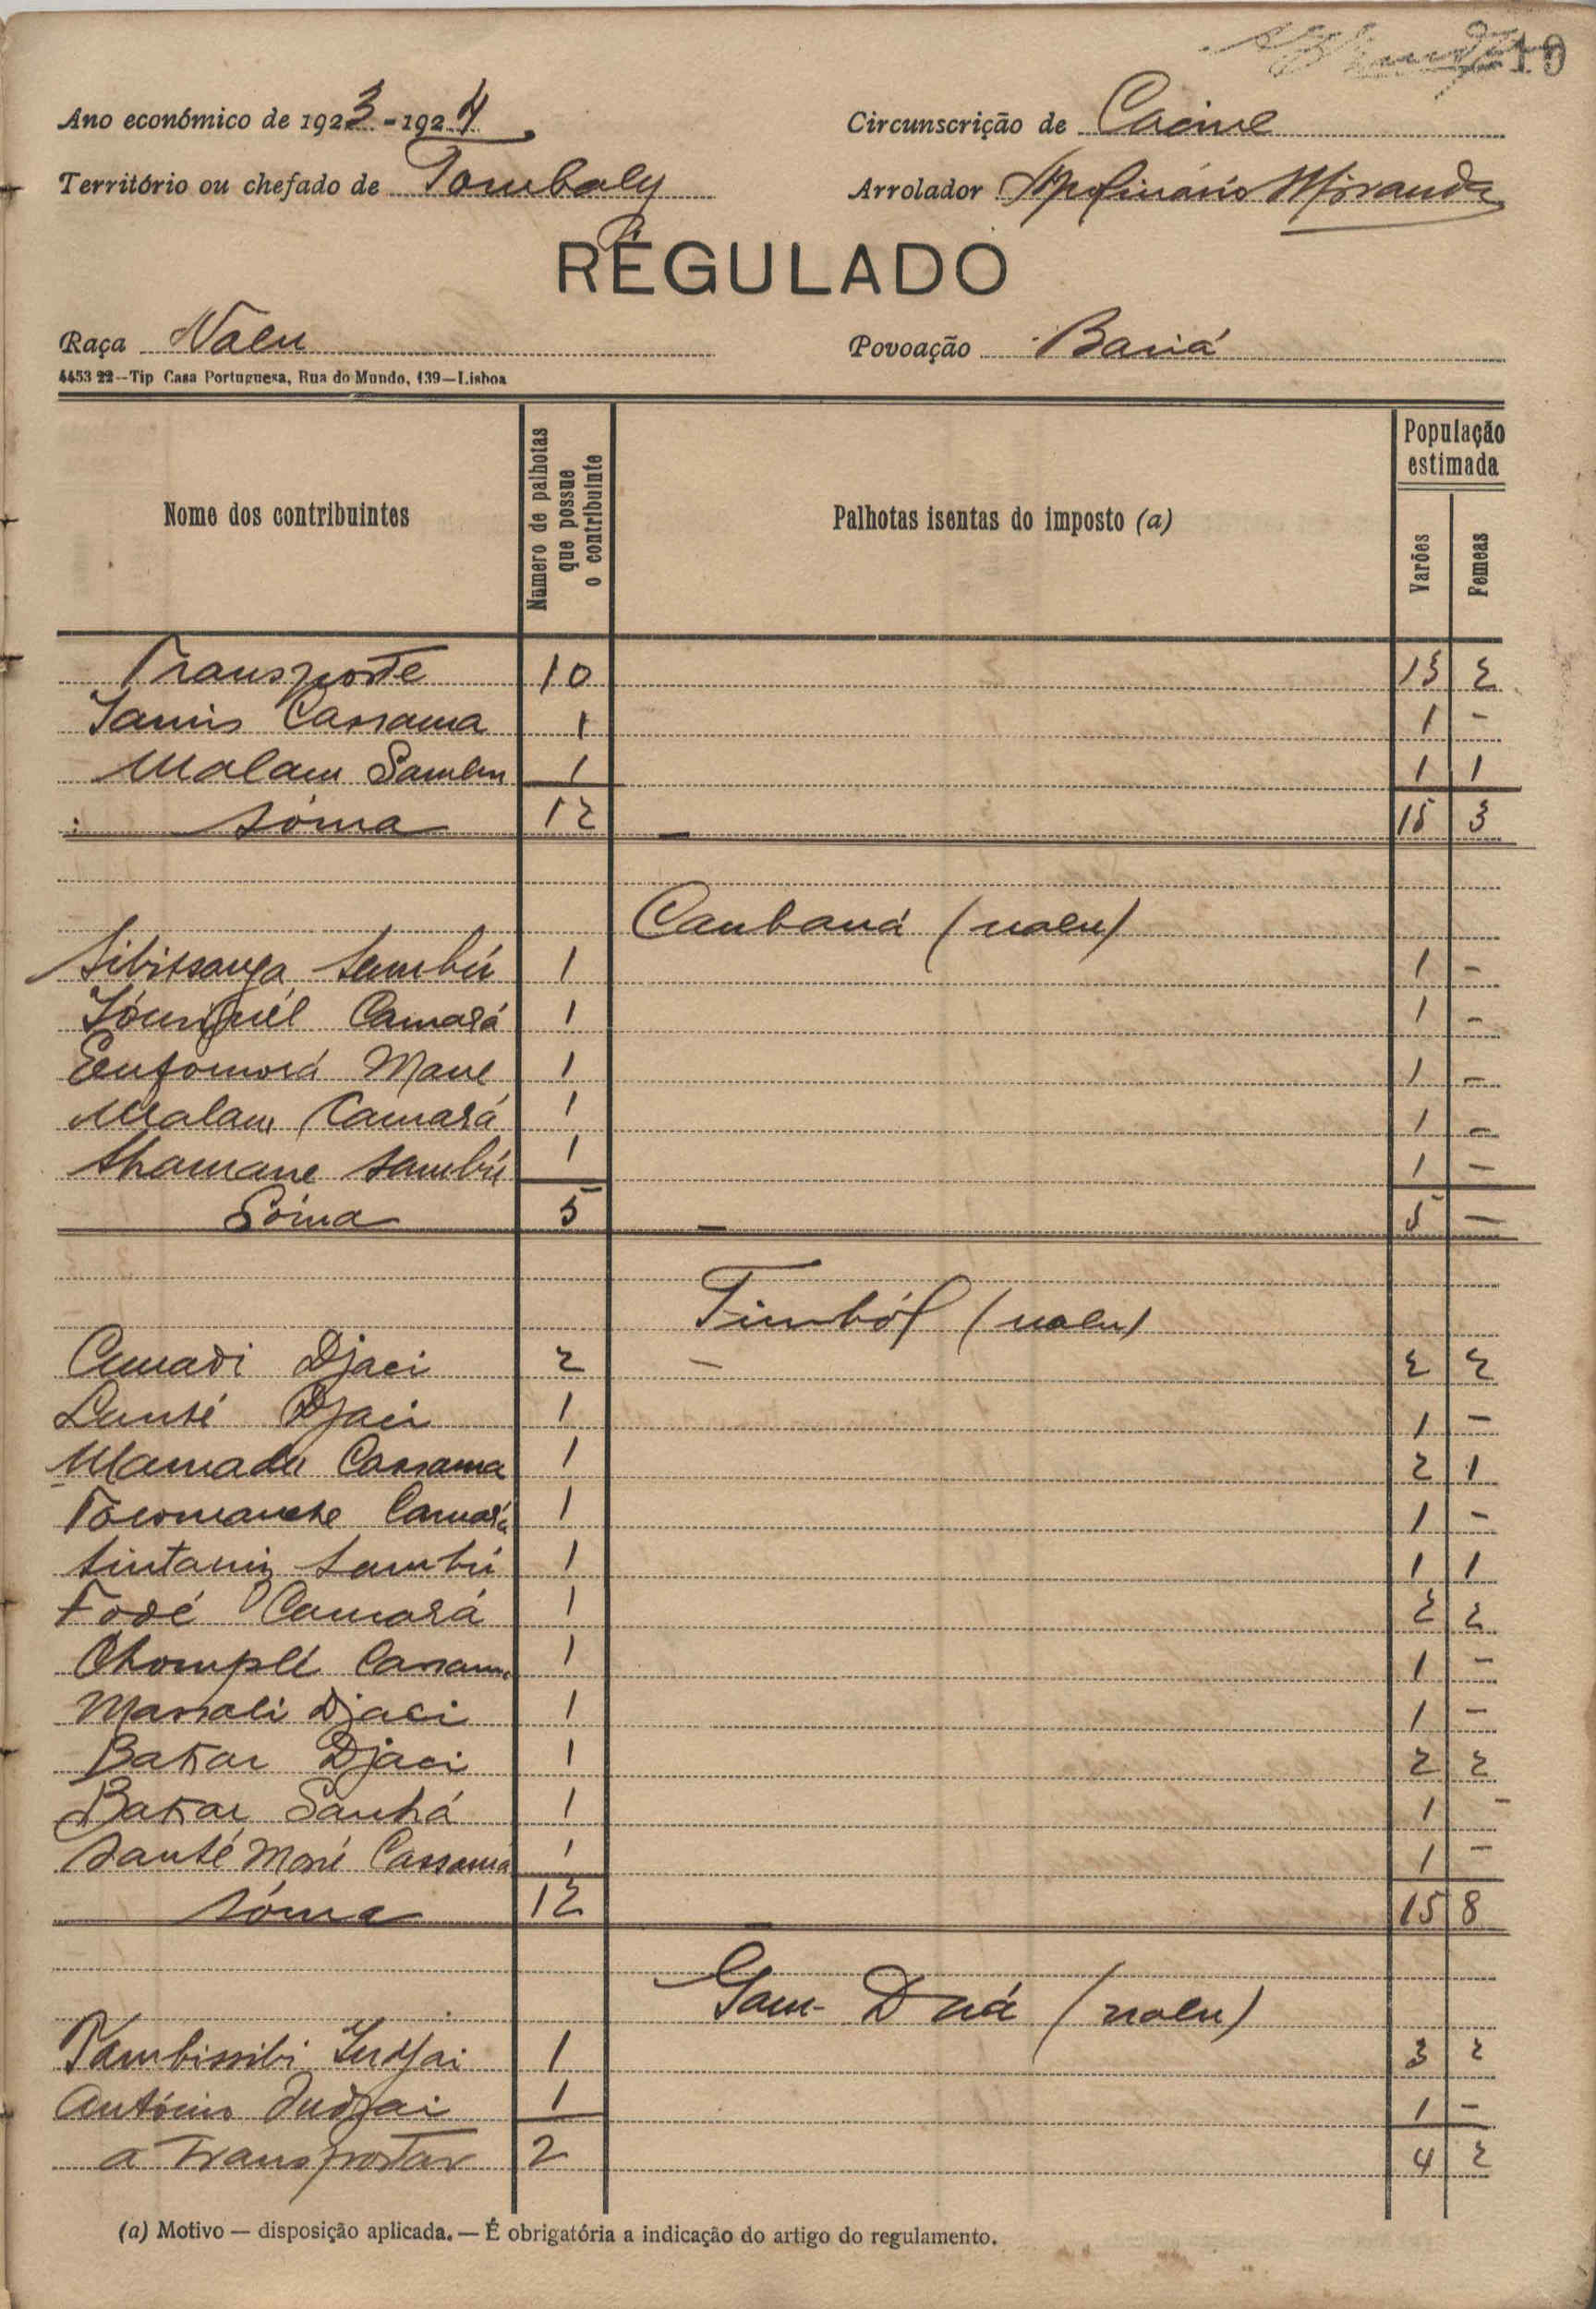 10
Ano económico de 1923-1924
Circunscrição de Cacine
Território ou chefado de Tombaly
Arrolador Apolinário Miranda
REGULADO
Raça Nalu
Povoação Baniá
4453 22--Tip Casa Portuguesa, Rua do Mundo, 139—Lisboa
Nome dos contribuintes
Número de palhotas que possue o contribuinte
Palhotas isentas do imposto (a)
População estimada
Varões
Femeas
Transporte 10 13 2
Cassama 1 1 -
Malam 1 1 1
Sóma 12 — 15 3
Canbaná (nalu)
Sambú 1 1 -
Camará 1 1 -
Mane 1 1 -
Malam Camará 1 1 -
Sambú 1 1 -
Sóma 5 — 5 -
Timból (nalu)
Amadi Djaci 2 - 2 2
Lansé Djaci 1 1 -
Mamadu Cassama 1 2 1
Camará 1 1 -
Sambú 1 1 1
Fodé Camará 1 2 2
Chomplé Cassama 1 1 -
Massali Djaci 1 1 -
Bakar Djaci 1 2 2
Bakar Sanhá 1 1 -
Cassamá 1 1 -
Sóma 12 — 15 8
Gam-Duá (nalu)
Tambissibi Indjai 1 3 2
António Indjai 1 1 -
a Transportar 2 4 2
(a) Motivo — disposição aplicada. — É obrigatória a indicação do artigo do regulamento.